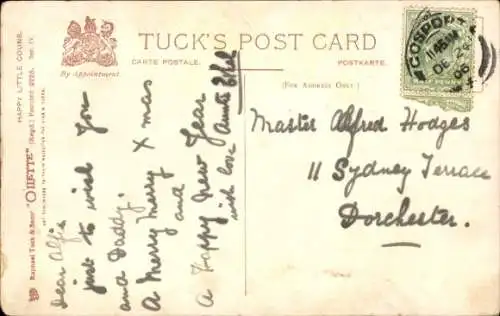 TUCK'S POST CARD
CARTE POSTALE.
POSTKARTE.
(FOR ADDRESS ONLY.)
By Appointment.
HAPPY LITTLE COONS.
Raphael Tuck & Sons' "OILETTE" [Regd.] Postcard
GOSPORT
11.45AM
DE
06
Dear Alfie
just to wish you
and Daddy.
A Merry Merry Xmas
and
A Happy New Year
with love Aunt Ethel
Master Alfred Hodges
11 Sydney Terrace
Dorchester.